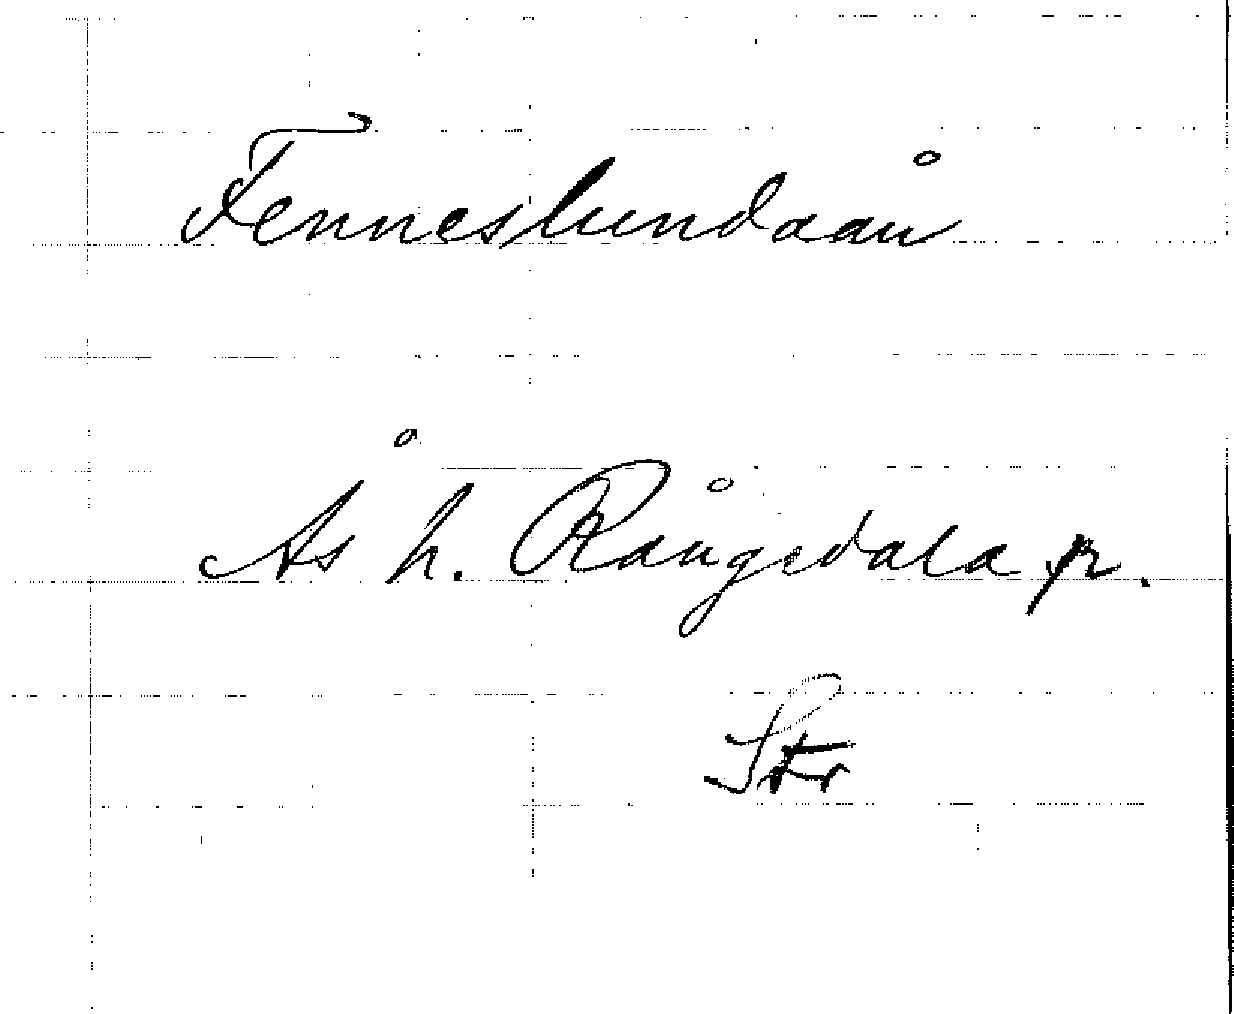 Fenneslundaån
Ås h. Rångedala pr.
Str